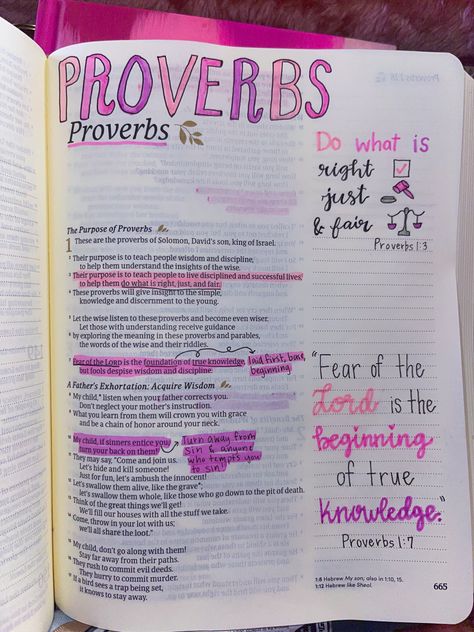 PROVERBS
Proverbs
The Purpose of Proverbs
1 These are the proverbs of Solomon, David's son, king of Israel.
2 Their purpose is to teach people wisdom and discipline,
to help them understand the insights of the wise.
3 Their purpose is to teach people to live disciplined and successful lives,
to help them do what is right, just, and fair.
4 These proverbs will give insight to the simple,
knowledge and discernment to the young.
5 Let the wise listen to these proverbs and become even wiser.
Let those with understanding receive guidance
6 by exploring the meaning in these proverbs and parables,
the words of the wise and their riddles.
7 Fear of the LORD is the foundation of true knowledge,
but fools despise wisdom and discipline.
laid first, base,
beginning
A Father's Exhortation: Acquire Wisdom
8 My child, listen when your father corrects you.
Don't neglect your mother's instruction.
9 What you learn from them will crown you with grace
and be a chain of honor around your neck.
10 My child, if sinners entice you,
turn your back on them!
Turn away from
sin & anyone
who tempts you
to sin!
11 They may say, "Come and join us.
Let's hide and kill someone!
Just for fun, let's ambush the innocent!
12 Let's swallow them alive, like the grave;
let's swallow them whole, like those who go down to the pit of death.
13 Think of the great things we'll get!
We'll fill our houses with all the stuff we take.
14 Come, throw in your lot with us;
we'll all share the loot."
15 My child, don't go along with them!
Stay far away from their paths.
16 They rush to commit evil deeds.
They hurry to commit murder.
17 If a bird sees a trap being set,
it knows to stay away.
Do what is
right
just
& fair
Proverbs 1:3
"Fear of the
Lord is the
beginning
of true
knowledge."
Proverbs 1:7
1:8 Hebrew My son; also in 1:10, 15.
1:12 Hebrew like Sheol.
665